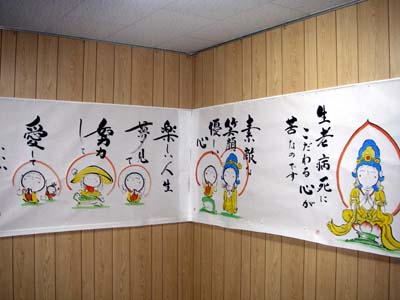 生老病死に
こだわる心が
苦なのです
素敵な
笑顔
優しい
心
楽しい人生
夢見て
努力
して
愛して